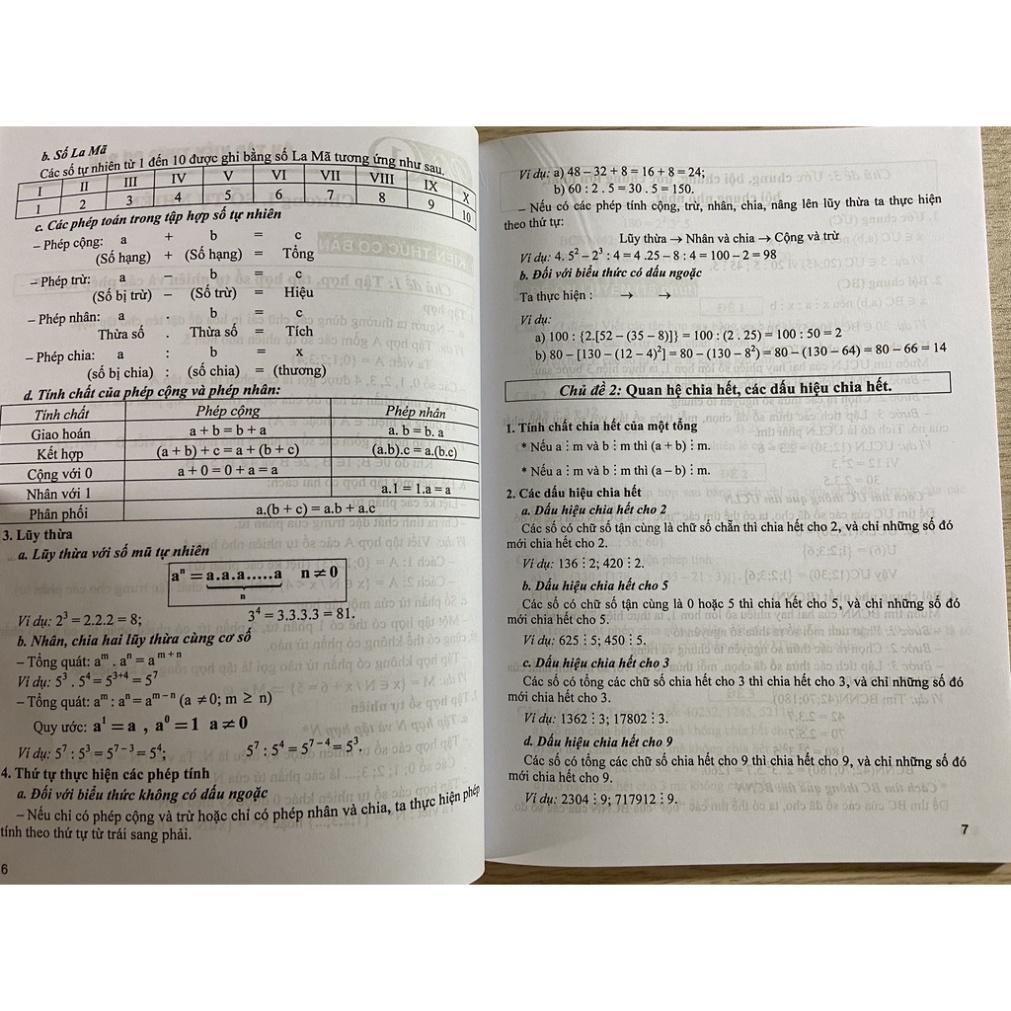 b. Số La Mã
Các số tự nhiên từ 1 đến 10 được ghi bằng số La Mã tương ứng như sau.
I II III IV V VI VII VIII IX X
1 2 3 4 5 6 7 8 9 10
c. Các phép toán trong tập hợp số tự nhiên
– Phép cộng: a + b = c
(Số hạng) + (Số hạng) = Tổng
– Phép trừ: a – b = c
(Số bị trừ) – (Số trừ) = Hiệu
– Phép nhân: a . b = c
Thừa số . Thừa số = Tích
– Phép chia: a : b = x
(số bị chia) : (số chia) = (thương)
d. Tính chất của phép cộng và phép nhân:
Tính chất Phép cộng Phép nhân
Giao hoán a + b = b + a a. b = b. a
Kết hợp (a + b) + c = a + (b + c) (a.b).c = a.(b.c)
Cộng với 0 a + 0 = 0 + a = a
Nhân với 1 a.1 = 1.a = a
Phân phối a.(b + c) = a.b + a.c
3. Lũy thừa
a. Lũy thừa với số mũ tự nhiên
aⁿ = a.a.a.....a n ≠ 0
n
Ví dụ: 2³ = 2.2.2 = 8; 3⁴ = 3.3.3.3 = 81.
b. Nhân, chia hai lũy thừa cùng cơ số
– Tổng quát: aᵐ . aⁿ = aᵐ ⁺ ⁿ
Ví dụ: 5³ . 5⁴ = 5³⁺⁴ = 5⁷
– Tổng quát: aᵐ : aⁿ = aᵐ ⁻ ⁿ (a ≠ 0; m ≥ n)
Quy ước: a¹ = a , a⁰ = 1 a ≠ 0
Ví dụ: 5⁷ : 5³ = 5⁷ ⁻ ³ = 5⁴; 5⁷ : 5⁴ = 5⁷ ⁻ ⁴ = 5³.
4. Thứ tự thực hiện các phép tính
a. Đối với biểu thức không có dấu ngoặc
– Nếu chỉ có phép cộng và trừ hoặc chỉ có phép nhân và chia, ta thực hiện phép
tính theo thứ tự từ trái sang phải.
6
Ví dụ: a) 48 – 32 + 8 = 16 + 8 = 24;
b) 60 : 2 . 5 = 30 . 5 = 150.
– Nếu có các phép tính cộng, trừ, nhân, chia, nâng lên lũy thừa ta thực hiện
theo thứ tự:
Lũy thừa → Nhân và chia → Cộng và trừ
Ví dụ: 4. 5² – 2³ : 4 = 4 .25 – 8 : 4 = 100 – 2 = 98
b. Đối với biểu thức có dấu ngoặc
Ta thực hiện : → →
Ví dụ:
a) 100 : {2.[52 – (35 – 8)]} = 100 : (2 . 25) = 100 : 50 = 2
b) 80 – [130 – (12 – 4)²] = 80 – (130 – 8²) = 80 – (130 – 64) = 80 – 66 = 14
Chủ đề 2: Quan hệ chia hết, các dấu hiệu chia hết.
1. Tính chất chia hết của một tổng
* Nếu a ⋮ m và b ⋮ m thì (a + b) ⋮ m.
* Nếu a ⋮ m và b ⋮ m thì (a – b) ⋮ m.
2. Các dấu hiệu chia hết
a. Dấu hiệu chia hết cho 2
Các số có chữ số tận cùng là chữ số chẵn thì chia hết cho 2, và chỉ những số đó
mới chia hết cho 2.
Ví dụ: 136 ⋮ 2; 420 ⋮ 2.
b. Dấu hiệu chia hết cho 5
Các số có chữ số tận cùng là 0 hoặc 5 thì chia hết cho 5, và chỉ những số đó
mới chia hết cho 5.
Ví dụ: 625 ⋮ 5; 450 ⋮ 5.
c. Dấu hiệu chia hết cho 3
Các số có tổng các chữ số chia hết cho 3 thì chia hết cho 3, và chỉ những số đó
mới chia hết cho 3.
Ví dụ: 1362 ⋮ 3; 17802 ⋮ 3.
d. Dấu hiệu chia hết cho 9
Các số có tổng các chữ số chia hết cho 9 thì chia hết cho 9, và chỉ những số đó
mới chia hết cho 9.
Ví dụ: 2304 ⋮ 9; 717912 ⋮ 9.
7